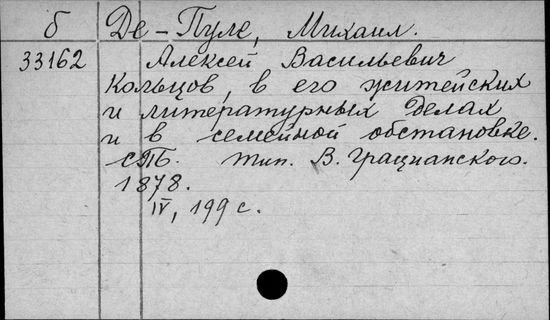 б Де-Пуле, Михаил.
33162 Алексей Васильевич
Кольцов, в его житейских
и литературных делах
и в семейной обстановке.
СПБ. Тип. В. Грацианского.
1878.
IV, 199 с.